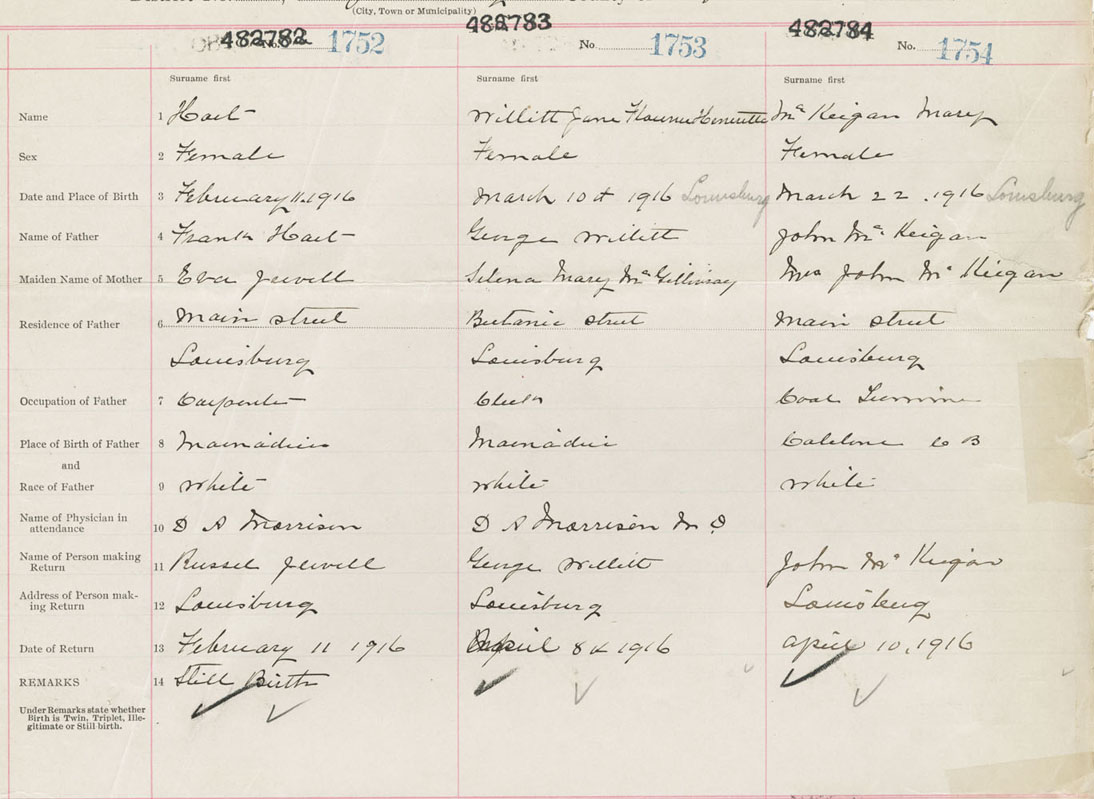 (City, Town or Municipality)
482782 No. 1752 482783 No. 1753 482784 No. 1754
Surname first Surname first Surname first
Name 1 Hart Willitt Jane Florence Henrietta McKeigan Mary
Sex 2 Female Female Female
Date and Place of Birth 3 February 11. 1916 March 10th 1916 Louisburg March 22. 1916 Louisburg
Name of Father 4 Frank Hart George Willitt John McKeigan
Maiden Name of Mother 5 Eva Jewell Selena Mary McGillivray Mrs John McKeigan
Residence of Father 6 Main street Botanic street Main street
Louisburg Louisburg Louisburg
Occupation of Father 7 Carpenter Clerk Coal
Place of Birth of Father 8 Mainadieu Mainadieu Catalone C B
and
Race of Father 9 White White White
Name of Physician in
attendance 10 D A Morrison D A Morrison M D
Name of Person making
Return 11 Russel Jewell George Willitt John McKeigan
Address of Person mak-
ing Return 12 Louisburg Louisburg Louisburg
Date of Return 13 February 11 1916 April 8th 1916 April 10, 1916
REMARKS 14 Still Birth
Under Remarks state whether
Birth is Twin, Triplet, Ille-
gitimate or Still birth.